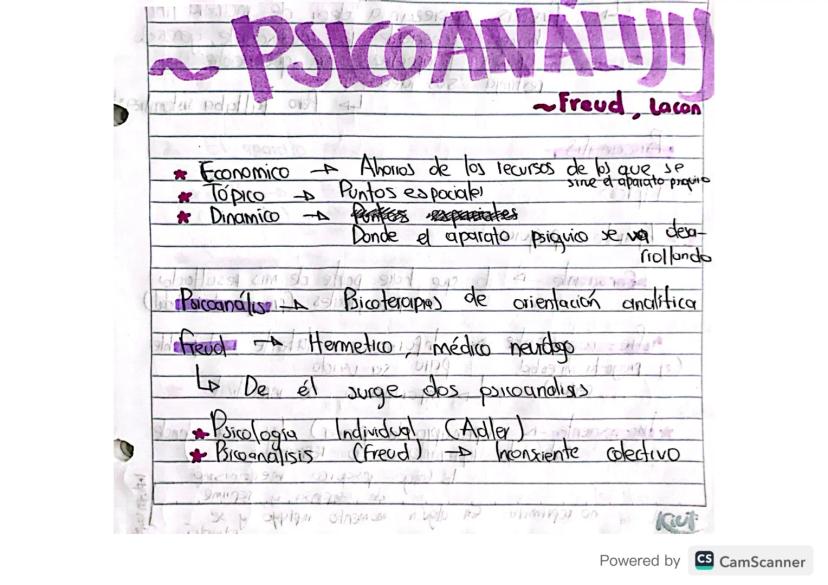 ~ PSICOANÁLISIS
~Freud, Lacan
* Economico → Ahorros de los recursos de los que se
sirve el aparato psiquico
* Tópico → Puntos espaciales
* Dinamico → Puntos espaciales
Donde el aparato psiquico se va desa-
rrollando
Psicoanális → Psicoterapias de orientación analítica
Freud → Hermetico, médico neurólogo
↳ De él surge dos psicoanálisis
* Psicología Individual (Adler)
* Psicoanálisis (Freud) → Inconxiente colectivo
Powered by CS CamScanner